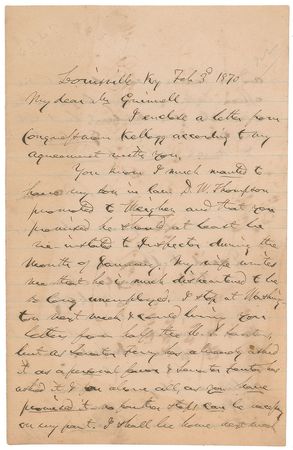 Louisville Ky Feb 3d 1870
My dear Mr Grinnell
I enclose a letter from
Congressman Kellogg according to my
agreement with you.
You know I much wanted to
have my son in law D. W. Thompson
promoted to Weigher and that you
promised he should at least be
re-instated to Inspector during the
month of January. My wife writes
me that he is much disheartened to be
so long unemployed. I stop at Washing-
ton next week & could bring you
letters from half the U. S.
but as Senator already asked
it as a personal favor & Senator has
asked it & above all, as you have
promised it no further steps can be necessary
on my part. I shall be home next week